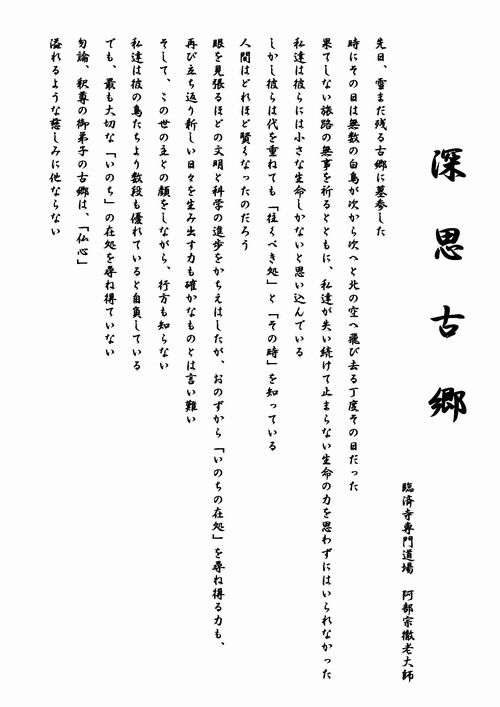 深思古郷
臨済寺専門道場　阿部宗徹老大師
先日、雪まだ残る古郷に墓参した
時にその日は無数の白鳥が次から次へと北の空へ飛び去る丁度その日だった
果てしない旅路の無事を祈るとともに、私達が失い続けて止まらない生命の力を思わずにはいられなかった
私達は彼らには小さな生命しかないと思い込んでいる
しかし彼らは代を重ねても「往くべき処」と「その時」を知っている
人間はどれほど賢くなったのだろう
眼を見張るほどの文明と科学の進歩をかちえはしたが、おのずから「いのちの在処」を尋ね得る力も、
再び立ち返り新しい日々を生み出す力も確かなものとは言い難い
そして、この世の主との顔をしながら、行方も知らない
私達は彼の鳥たちより数段も優れていると自負している
でも、最も大切な「いのち」の在処を尋ね得ていない
勿論、釈尊の御弟子の古郷は、「仏心」
溢れるような慈しみに他ならない